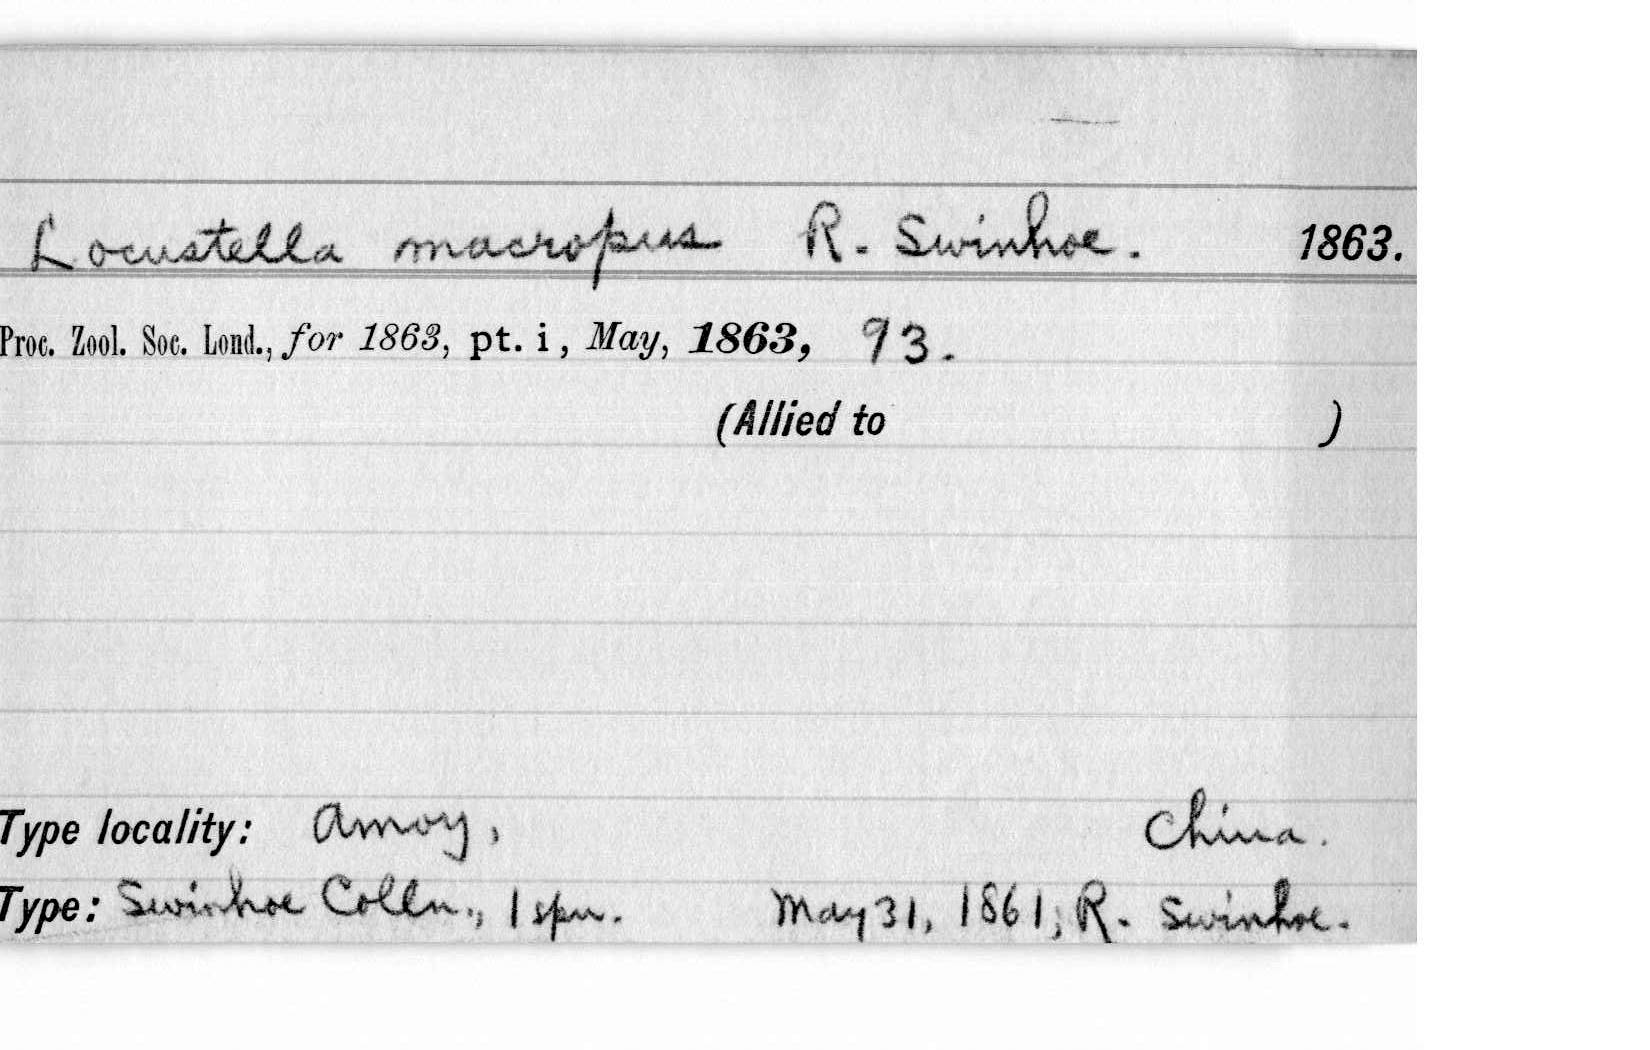 Locustella macropus R. Swinhoe. 1863.
Proc. Zool. Soc. Lond., for 1863, pt. i, May, 1863, 93.
(Allied to )
Type locality: Amoy, China.
Type: Swinhoe Colln., 1 spn. May 31, 1861; R. Swinhoe.